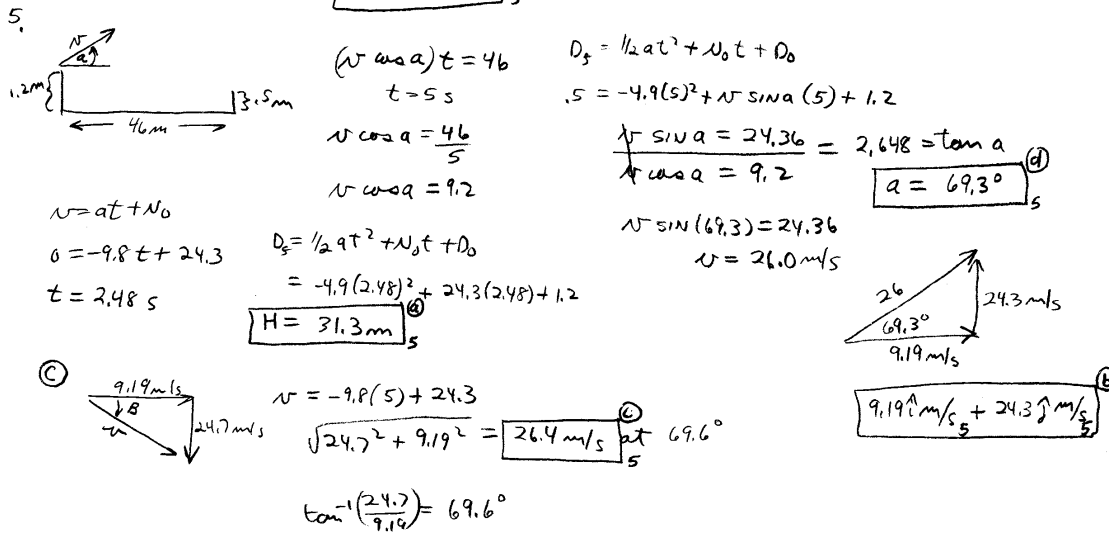 5.
v
a
1.2m
.5m
46m
(v cos a) t = 46
t = 5 s
v cos a = 46/5
v cos a = 9.2
D₅ = 1/2 at² + v₀t + D₀
.5 = -4.9(5)² + v sin a (5) + 1.2
v sin a = 24.36 / v cos a = 9.2 = 2.648 = tan a
ⓓ
a = 69.3° 5
v sin (69.3) = 24.36
v = 26.0 m/s
v = at + v₀
0 = -9.8 t + 24.3
t = 2.48 s
D₅ = 1/2 at² + v₀t + D₀
= -4.9(2.48)² + 24.3(2.48) + 1.2
H = 31.3 m ⓐ 5
26
69.3°
24.3 m/s
9.19 m/s
ⓑ
9.19 î m/s 5 + 24.3 ĵ m/s 5
ⓒ
9.19 m/s
B
v
24.7 m/s
v = -9.8(5) + 24.3
√24.7² + 9.19² = 26.4 m/s ⓒ 5 at 69.6°
tan⁻¹(24.7/9.19) = 69.6°